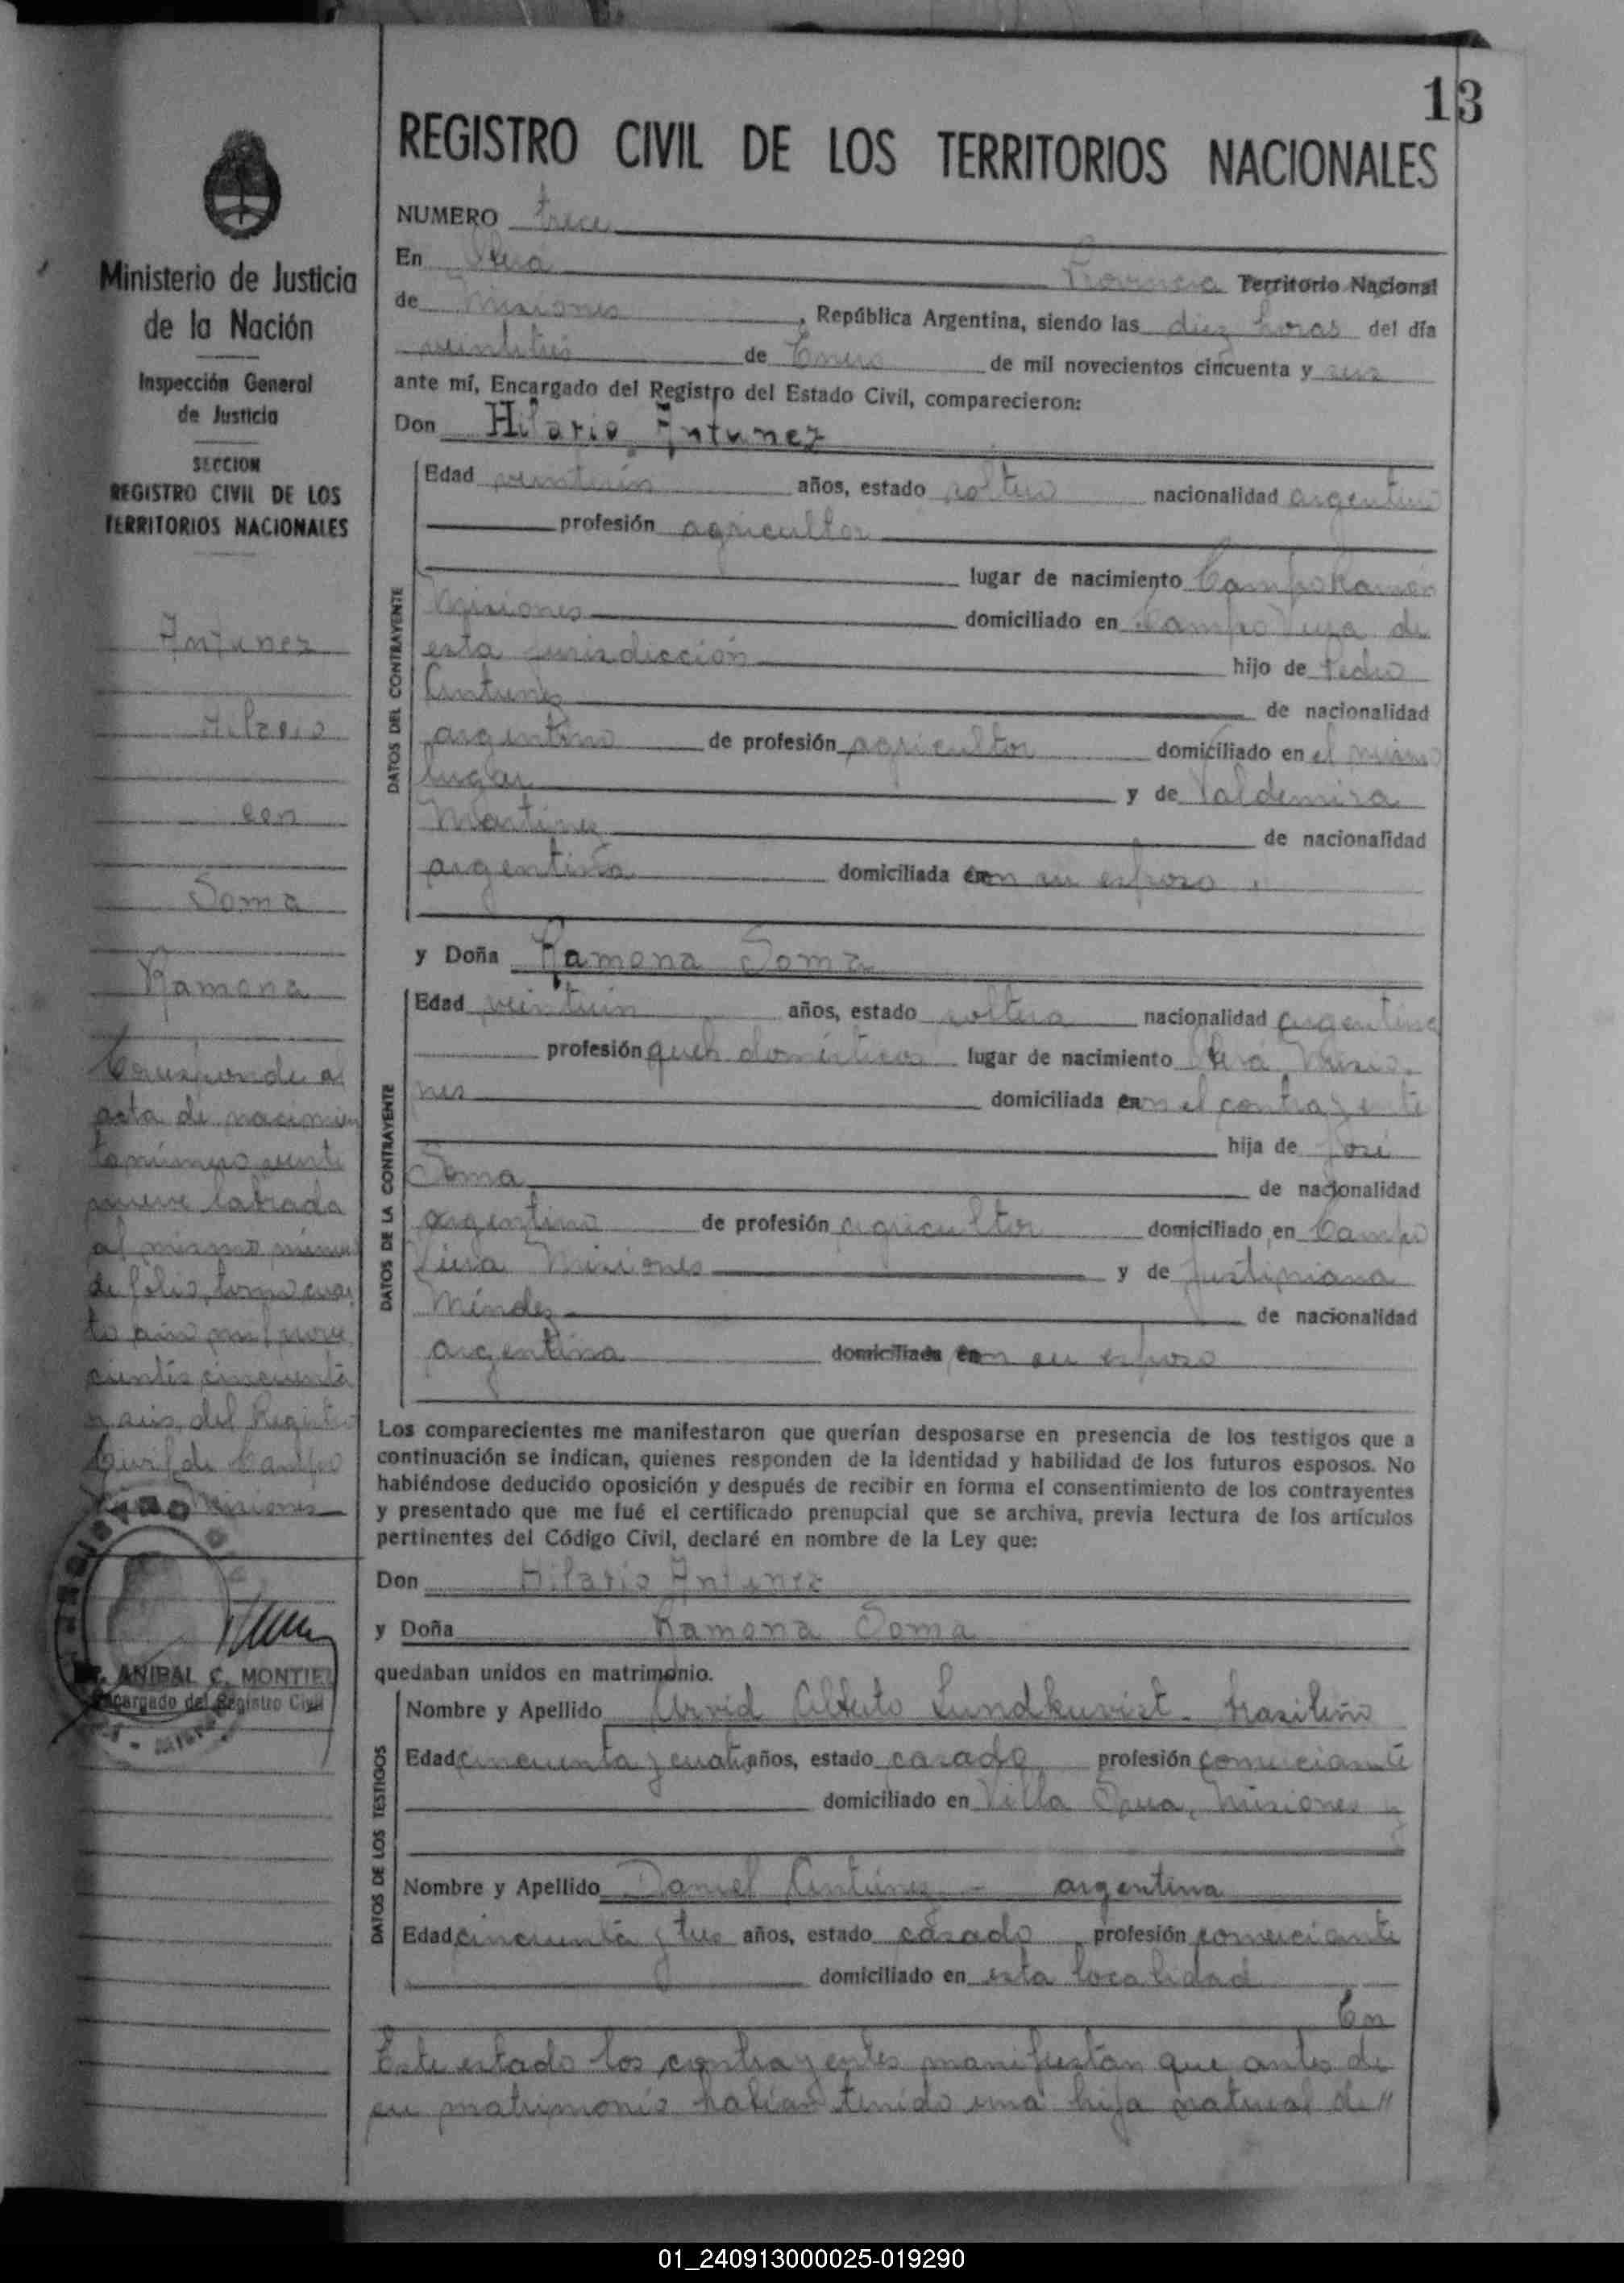 13
REGISTRO CIVIL DE LOS TERRITORIOS NACIONALES
NUMERO trece
En Oberá Provincia Territorio Nacional
de Misiones, República Argentina, siendo las diez horas del día
veintitres de Enero de mil novecientos cincuenta y seis
ante mí, Encargado del Registro del Estado Civil, comparecieron:
Don Hilario Antunez
Edad veintiún años, estado soltero nacionalidad argentino
profesión agricultor
lugar de nacimiento Campo Ramón
Misiones domiciliado en Campo Viera de
esta jurisdicción hijo de Pedro
Antunes de nacionalidad
argentino de profesión agricultor domiciliado en el mismo
lugar y de Valdemira
Martinez de nacionalidad
argentina domiciliada con su esposo
y Doña Ramona Soma
Edad veintiún años, estado soltera nacionalidad argentina
profesión queh domésticos lugar de nacimiento Oberá Misio-
nes domiciliada con el contrayente
hija de José
Soma de nacionalidad
argentino de profesión agricultor domiciliado en Campo
Viera Misiones y de Justiniana
Méndez de nacionalidad
argentina domiciliada con su esposo
DATOS DEL CONTRAYENTE
DATOS DE LA CONTRAYENTE
Los comparecientes me manifestaron que querían desposarse en presencia de los testigos que a
continuación se indican, quienes responden de la identidad y habilidad de los futuros esposos. No
habiéndose deducido oposición y después de recibir en forma el consentimiento de los contrayentes
y presentado que me fué el certificado prenupcial que se archiva, previa lectura de los artículos
pertinentes del Código Civil, declaré en nombre de la Ley que:
Don Hilario Antunez
y Doña Ramona Soma
quedaban unidos en matrimonio.
DATOS DE LOS TESTIGOS
Nombre y Apellido Arvid Alberto Lundkuvist - brasileño
Edad cincuenta y cuatro años, estado casado profesión comerciante
domiciliado en Villa Misiones y
Nombre y Apellido Daniel Antúnez - argentina
Edad cincuenta y tres años, estado casado profesión comerciante
domiciliado en esta localidad
En
Este estado los contrayentes manifiestan que antes de
su matrimonio habían tenido una hija natural de"
Ministerio de Justicia
de la Nación
Inspección General
de Justicia
SECCION
REGISTRO CIVIL DE LOS
TERRITORIOS NACIONALES
Antunez
Hilario
con
Soma
Ramona
Corresponde al
acta de nacimien
to número veinti
nueve labrada
al mismo número
de folio, tomo cuar
to año mil nove
cientos cincuenta
y seis, del Registro
Civil de Campo
Viera Misiones
REGISTRO
ANIBAL C. MONTIEL
Encargado del Registro Civil
01_240913000025-019290